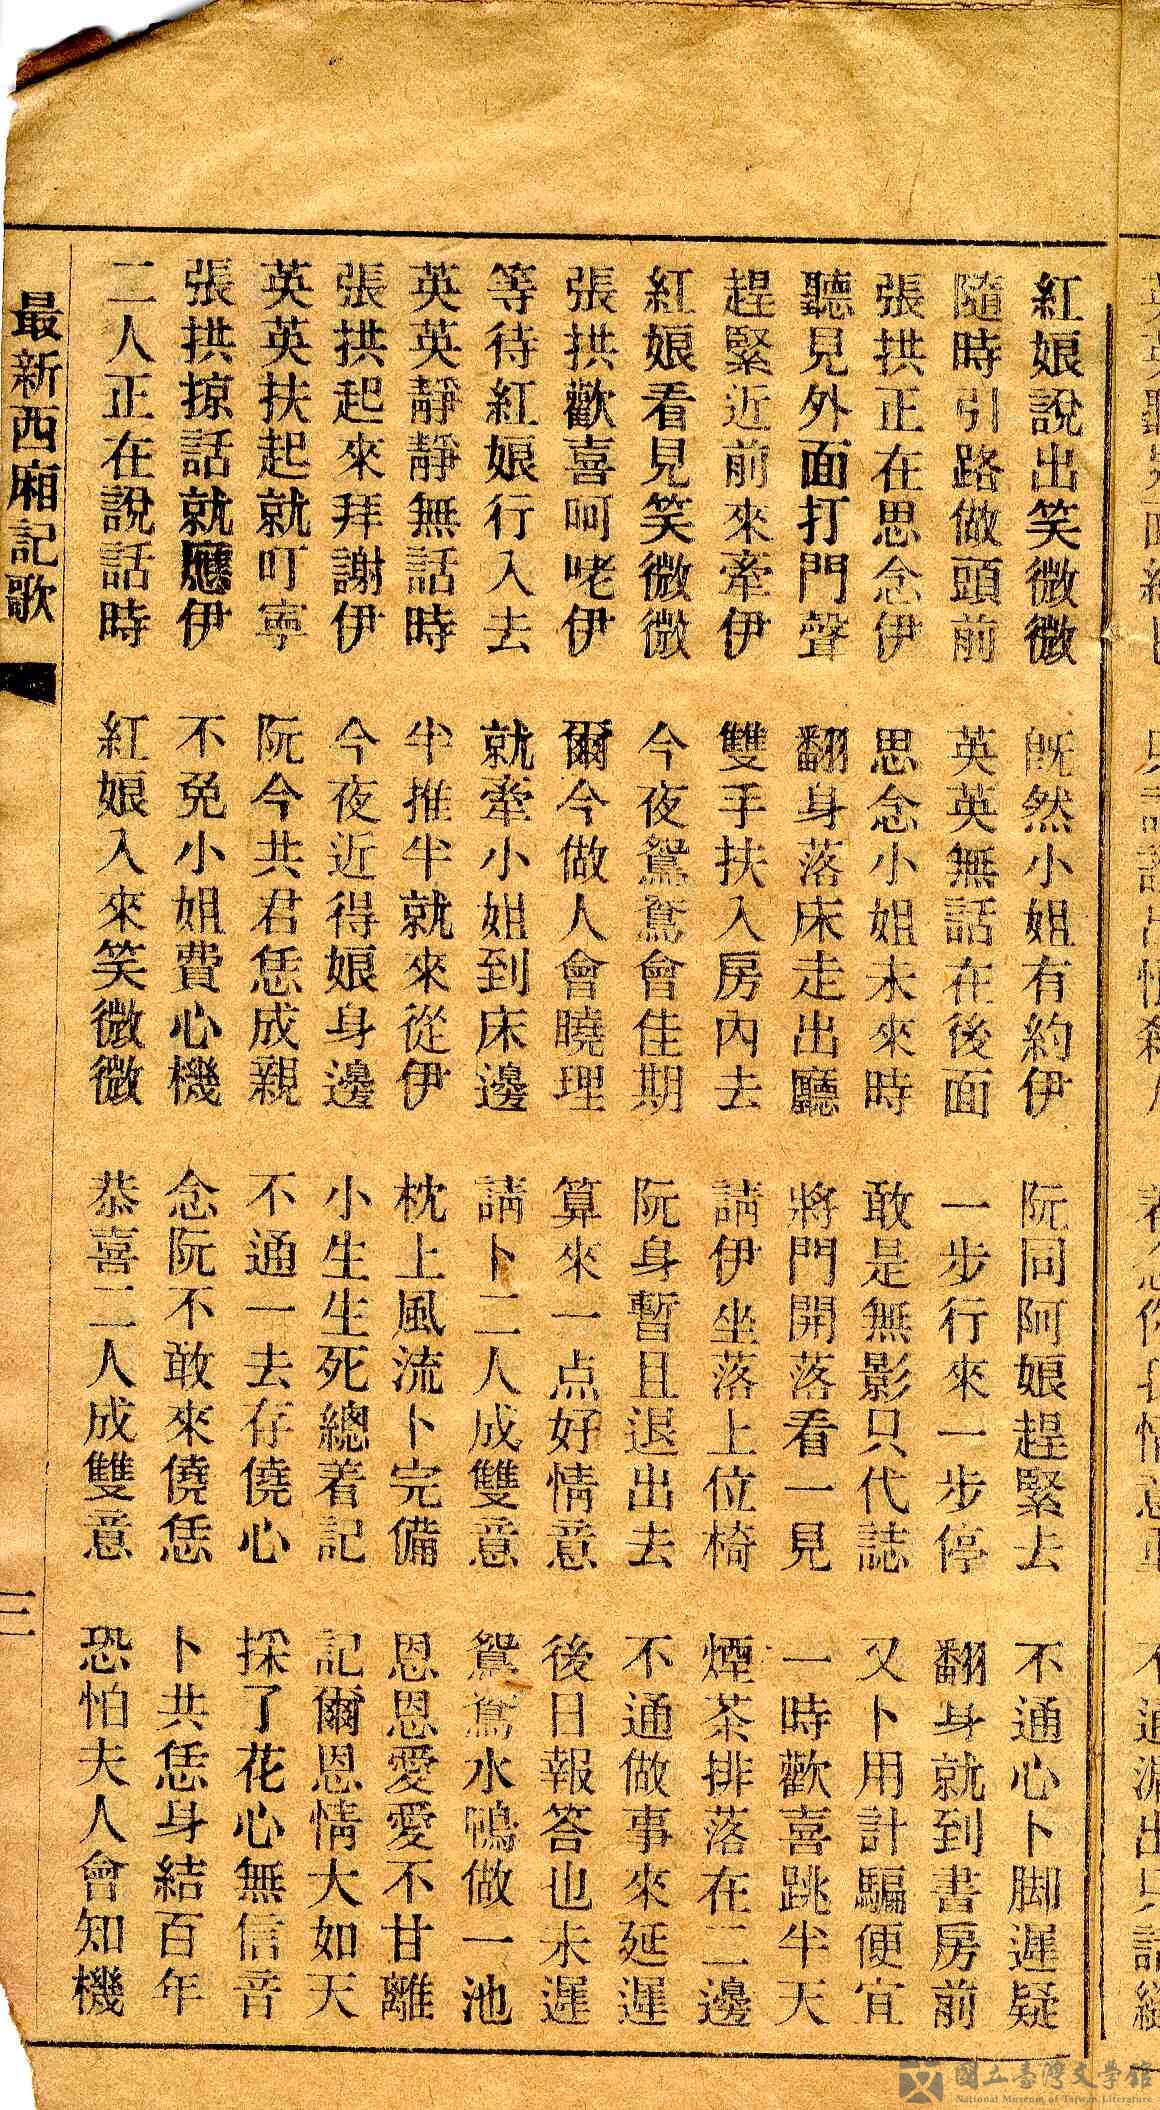 紅娘說出笑微微　既然小姐有約伊　阮同阿娘趕緊去　不通心卜脚遲疑
隨時引路做頭前　英英無話在後面　一步行來一步停　翻身就到書房前
張拱正在思念伊　思念小姐未來時　敢是無影只代誌　又卜用計騙便宜
聽見外面打門聲　翻身落床走出廳　將門開落看一見　一時歡喜跳半天
趕緊近前來牽伊　雙手扶入房內去　請伊坐落上位椅　煙茶排落在二邊
紅娘看見笑微微　今夜鴛鴦會佳期　阮身暫且退出去　不通做事來延遲
張拱歡喜呵咾伊　爾今做人會曉理　算來一点好情意　後日報答也未遲
等待紅娘行入去　就牽小姐到床邊　請卜二人成雙意　鴛鴦水鴨做一池
英英靜靜無話時　半推半就來從伊　枕上風流卜完備　恩恩愛愛不甘離
張拱起來拜謝伊　今夜近得娘身邊　小生生死總着記　記爾恩情大如天
英英扶起就叮寧　阮今共君恁成親　不通一去存僥心　採了花心無信音
張拱掠話就應伊　不免小姐費心機　念阮不敢來僥恁　卜共恁身結百年
二人正在說話時　紅娘入來笑微微　恭喜二人成雙意　恐怕夫人會知機
最新西廂記歌　三
國立臺灣文學館
National Museum of Taiwan Literature